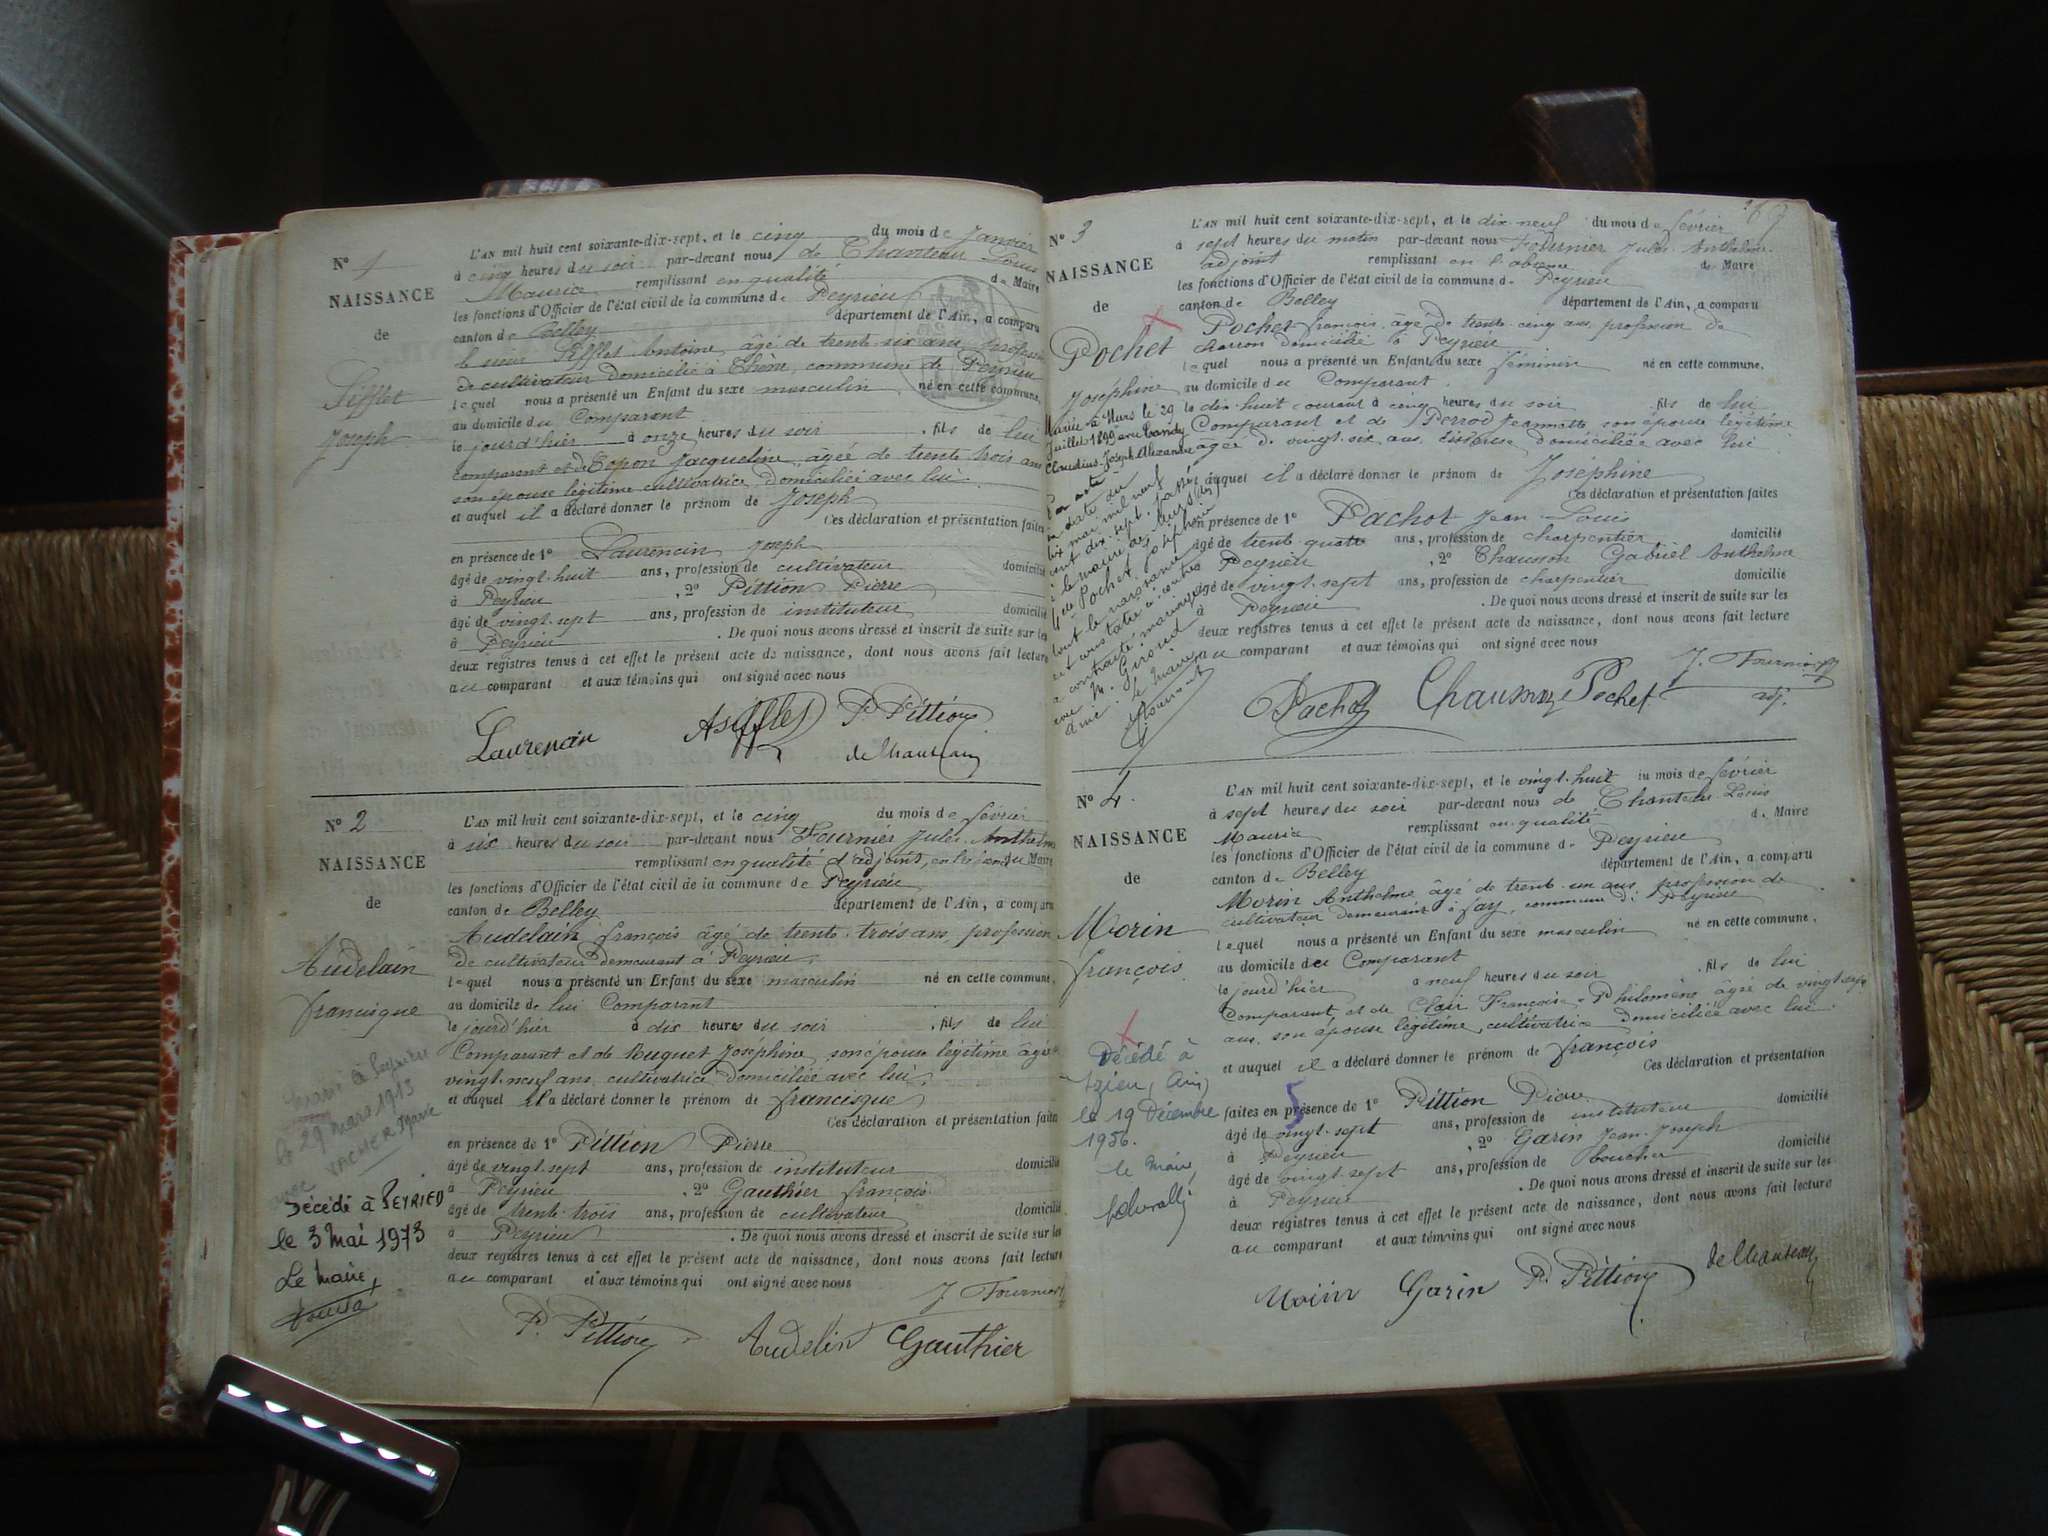 Nº 1
NAISSANCE
de
Sifflet
Joseph
L'AN mil huit cent soixante-dix-sept, et le cinq du mois de Janvier
à cinq heures du soir par-devant nous de Chanteau Louis
Maurice remplissant en qualité de Maire
les fonctions d'Officier de l'état civil de la commune de Peyrieu
canton de Belley département de l'Ain, a comparu
le sieur Sifflet Antoine, âgé de trente six ans, profession
de cultivateur domicilié à commune de Peyrieu
lequel nous a présenté un Enfant du sexe masculin né en cette commune,
au domicile du Comparant
le jourd'hier à onze heures du soir , fils de lui
comparant et de Jacqueline, âgée de trente trois ans
son épouse légitime cultivatrice domiciliée avec lui.
et auquel il a déclaré donner le prénom de Joseph
Ces déclaration et présentation faites
en présence de 1º Laurencin Joseph
âgé de vingt-huit ans, profession de cultivateur domicilié
à Peyrieu , 2º Pittion Pierre
âgé de vingt-sept ans, profession de instituteur domicilié
à Peyrieu . De quoi nous avons dressé et inscrit de suite sur les
deux registres tenus à cet effet le présent acte de naissance, dont nous avons fait lecture
au comparant et aux témoins qui ont signé avec nous
Laurencin P. Pittion
Nº 2
NAISSANCE
de
Audelain
francisque
29 mars 1913
Décédé à PEYRIEU
le 3 Mai 1973
Le Maire,
L'AN mil huit cent soixante-dix-sept, et le cinq du mois de février
à six heures du soir par-devant nous Fournier Jules Anthelme
remplissant en qualité d'adjoint, du Maire
les fonctions d'Officier de l'état civil de la commune de Peyrieu
canton de Belley département de l'Ain, a comparu
Audelain françois âgé de trente-trois ans, profession
de cultivateur demeurant à Peyrieu,
lequel nous a présenté un Enfant du sexe masculin né en cette commune,
au domicile de lui Comparant
le jourd'hier à dix heures du soir , fils de lui
Comparant et de Buguet Joséphine, son épouse légitime âgée
vingt-neuf ans, cultivatrice domiciliée avec lui,
et auquel il a déclaré donner le prénom de francisque
Ces déclaration et présentation faites
en présence de 1º Pittion Pierre
âgé de vingt-sept ans, profession de instituteur domicilié
à Peyrieu , 2º Gauthier françois
âgé de trente-trois ans, profession de cultivateur domicilié
à Peyrieu . De quoi nous avons dressé et inscrit de suite sur les
deux registres tenus à cet effet le présent acte de naissance, dont nous avons fait lecture
au comparant et aux témoins qui ont signé avec nous
J. Fournier
P. Pittion Audelin Gauthier
Nº 3
NAISSANCE
de
Pochet
Joséphine
Juillet 1899 avec
Claudius Joseph Alexandre
L'AN mil huit cent soixante-dix-sept, et le dix-neuf du mois de février
à sept heures du matin par-devant nous Fournier Jules Anthelme
adjoint remplissant en l'absence de Maire
les fonctions d'Officier de l'état civil de la commune de Peyrieu
canton de Belley département de l'Ain, a comparu
Pochet françois âgé de trente-cinq ans, profession de
charron domicilié à Peyrieu
lequel nous a présenté un Enfant du sexe féminin né en cette commune,
au domicile du Comparant.
le dix-huit courant à cinq heures du soir , fils de lui
Comparant et de Perrod Jeannette son épouse légitime
âgée de vingt-six ans domiciliée avec lui
auquel il a déclaré donner le prénom de Joséphine
Ces déclaration et présentation faites
en présence de 1º Pachot Jean Louis
âgé de trente-quatre ans, profession de charpentier domicilié
Peyrieu , 2º Chauson Gabriel Anthelme
âgé de vingt-sept ans, profession de charpentier domicilié
à Peyrieu . De quoi nous avons dressé et inscrit de suite sur les
deux registres tenus à cet effet le présent acte de naissance, dont nous avons fait lecture
au comparant et aux témoins qui ont signé avec nous
J. Fournier
Pachot Pochet adj.
Nº 4
NAISSANCE
de
Morin
françois
Décédé à
Izieu (Ain)
le 19 Décembre
1956.
le Maire
L'AN mil huit cent soixante-dix-sept, et le vingt-huit du mois de février
à sept heures du soir par-devant nous de Chanteau Louis
Maurice remplissant en qualité de Maire
les fonctions d'Officier de l'état civil de la commune de Peyrieu
canton de Belley département de l'Ain, a comparu
Morin Anthelme âgé de trente-un ans, profession de
cultivateur demeurant à fay, commune de Peyrieu
lequel nous a présenté un Enfant du sexe masculin né en cette commune,
au domicile du Comparant
le jourd'hier à neuf heures du soir , fils de lui
Comparant et de Clair Françoise-Philomène âgée de vingt
ans, son épouse légitime, cultivatrice domiciliée avec lui
et auquel il a déclaré donner le prénom de françois
Ces déclaration et présentation
faites en présence de 1º Pittion Pierre
âgé de vingt-sept ans, profession de instituteur domicilié
à Peyrieu , 2º Garin Jean-Joseph
âgé de vingt-sept ans, profession de boucher domicilié
à Peyrieu . De quoi nous avons dressé et inscrit de suite sur les
deux registres tenus à cet effet le présent acte de naissance, dont nous avons fait lecture
au comparant et aux témoins qui ont signé avec nous
Morin Garin P. Pittion